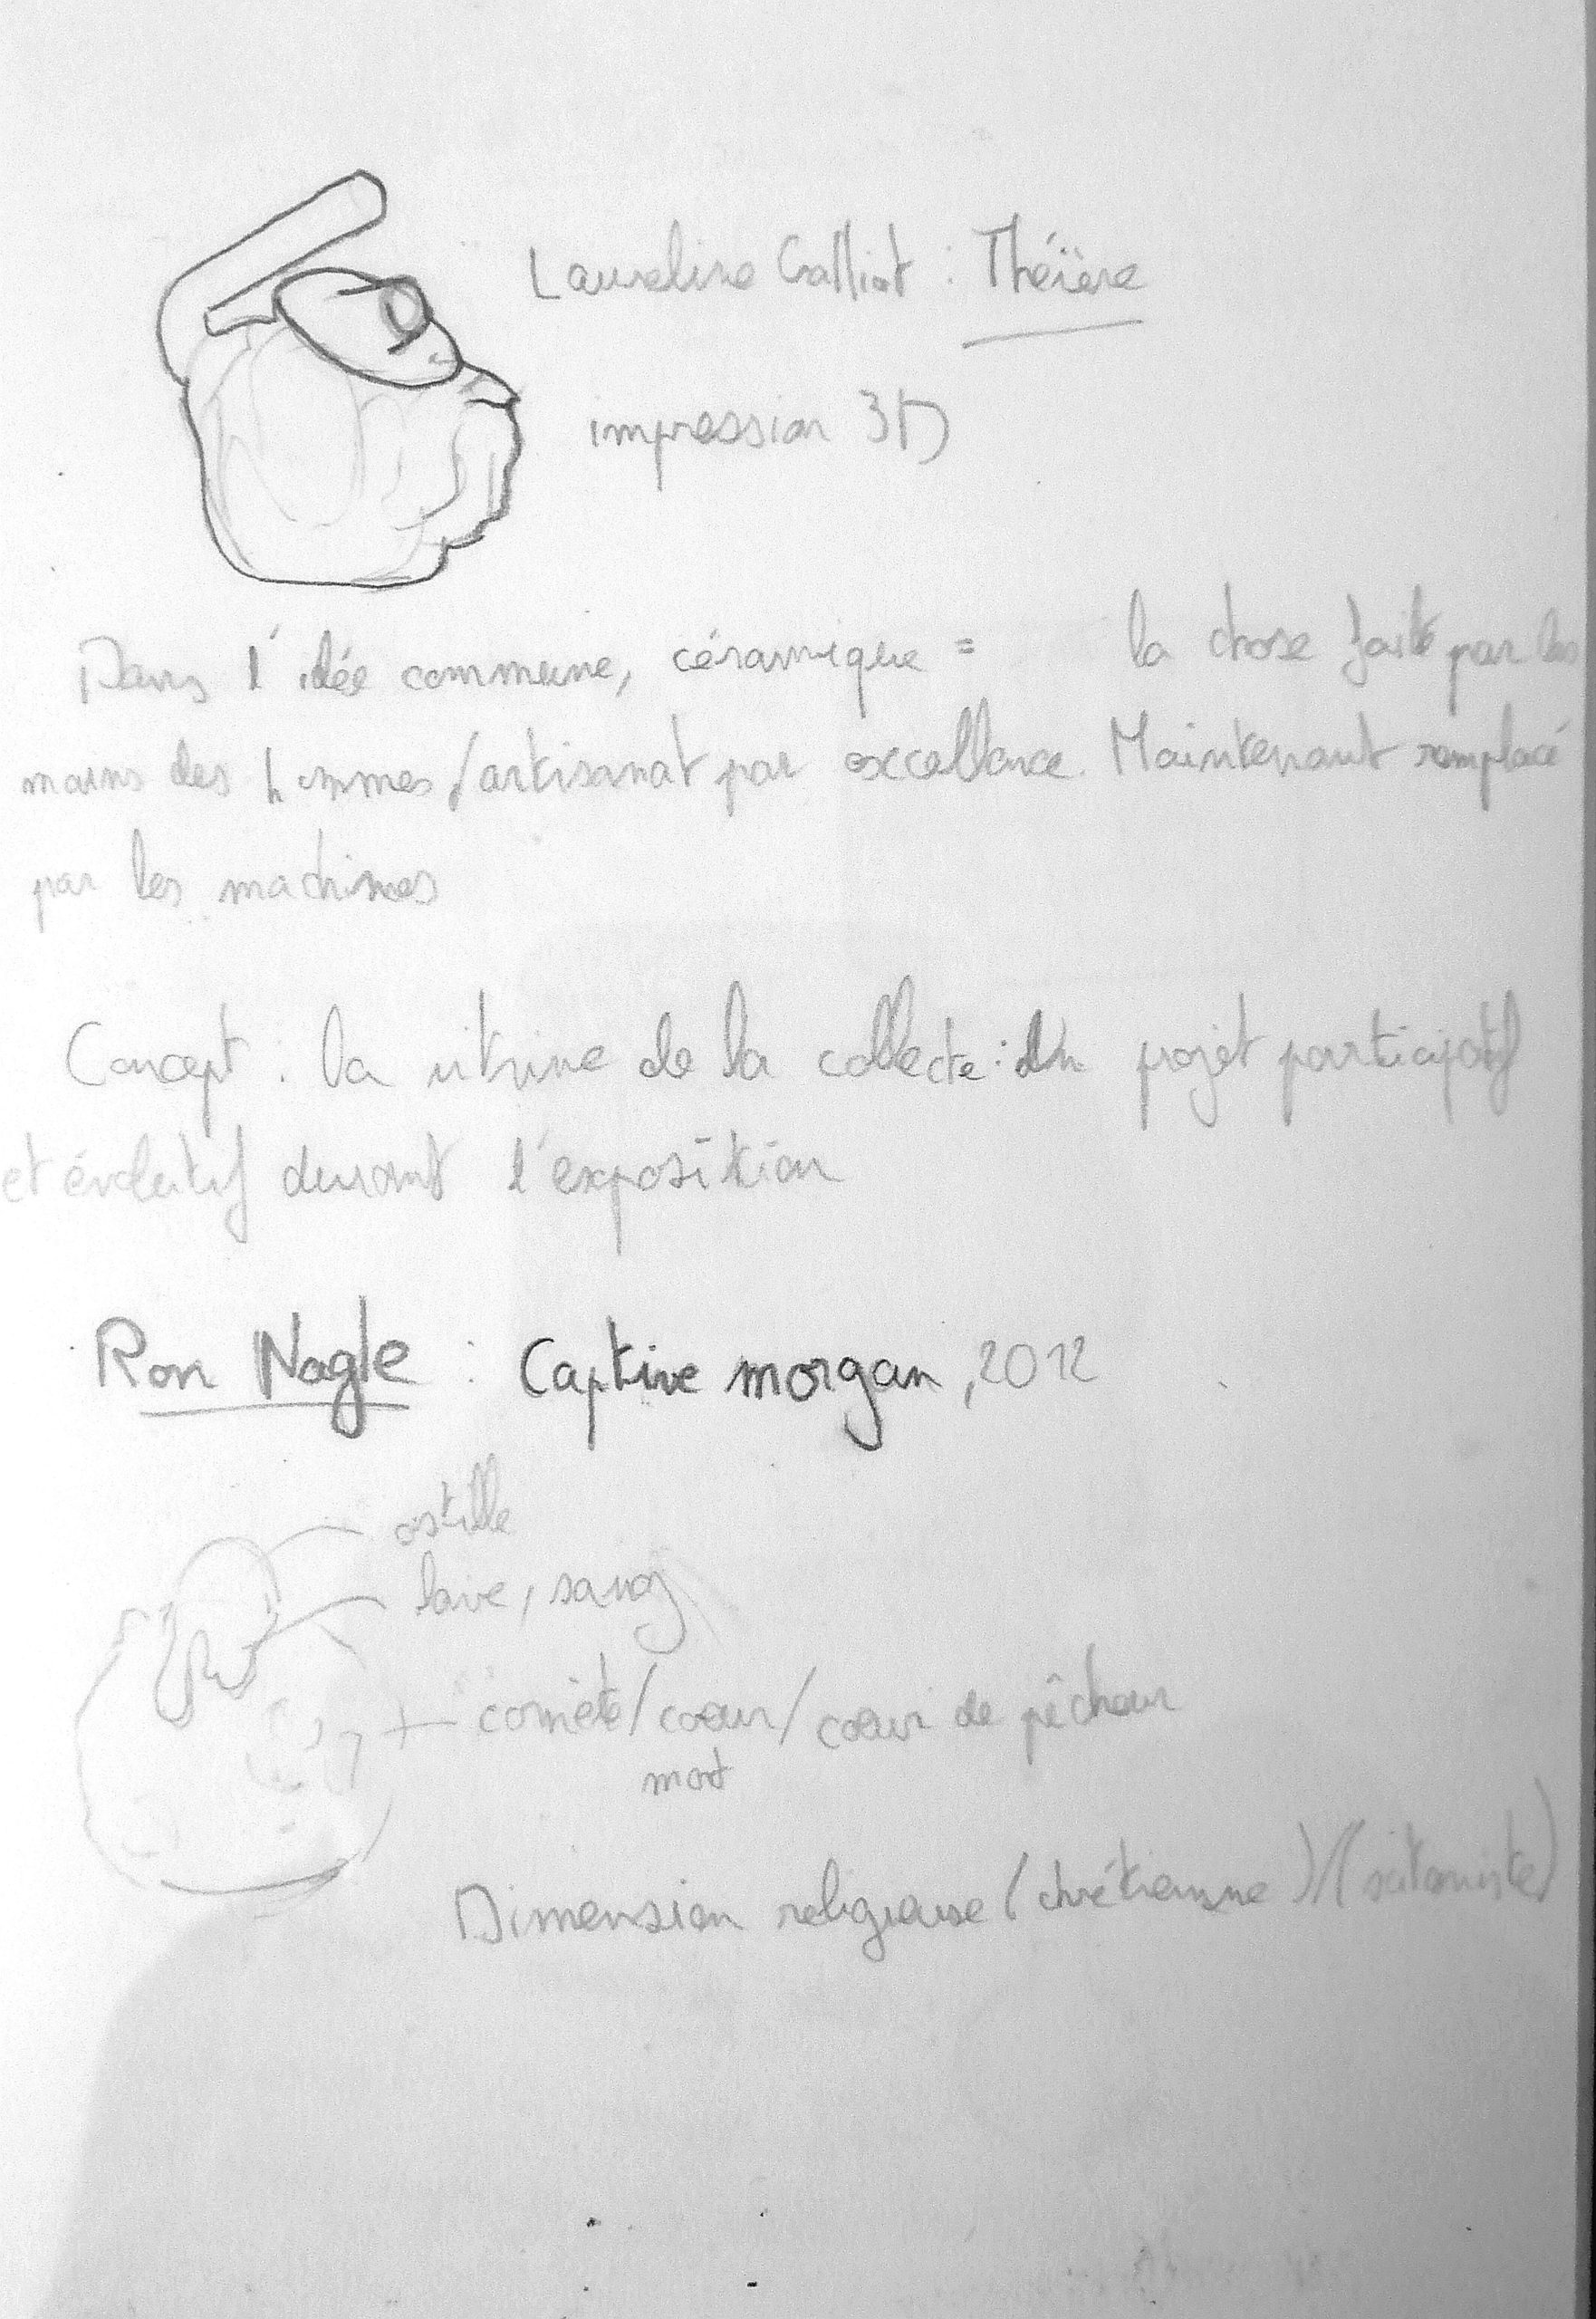 Laureline Galliot : Théïère
impression 3D
Dans l'idée commune, céramique = la chose faite par les
mains des hommes/artisanat par excellence. Maintenant remplacé
par les machines
Concept : la vitrine de la collecte : Un projet participatif
et évolutif durant l'exposition
Ron Nagle : Captive morgan, 2012
lave, sang
comète/coeur/coeur de pêcheur
mort
Dimension religieuse (chrétienne)/(sataniste)